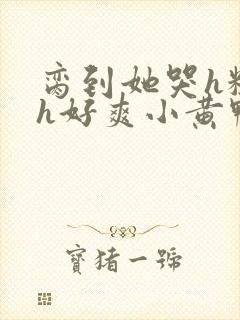 脔到她哭h
h好爽小黄
寶猪一號